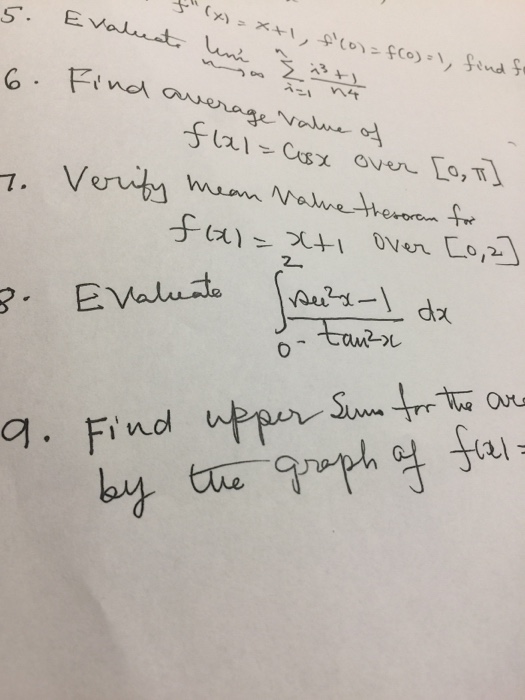 f''(x) = x+1, f'(0) = f(0) = 1, find f
5. Evaluate lim n→∞ n Σ i=1 i³+1 / n4
6. Find average value of
f(x) = Cosx over [0,π]
7. Verify mean value theoram for
f(x) = x+1 over [0,2]
8. Evaluate ∫ 0 2 sec²x-1 / tan²x dx
9. Find upper Sum for the are
by the graph of f(x) =